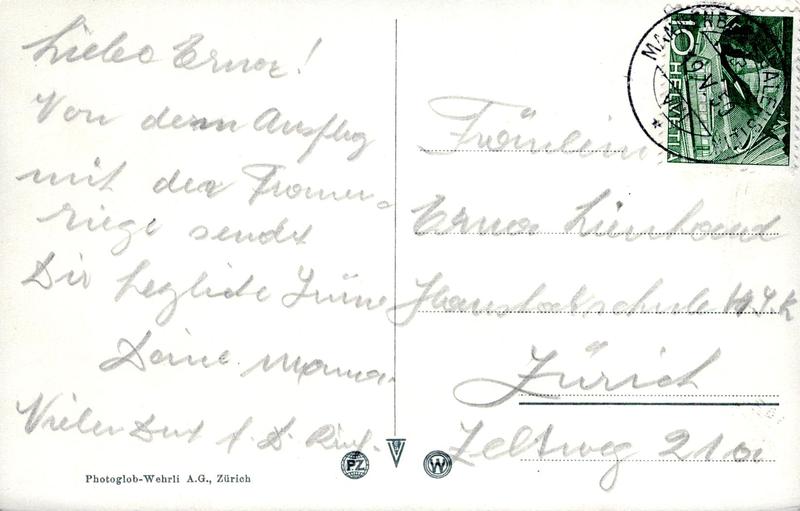 Liebe Erna!
Von dem Ausflug
mit der Frauen-
riege sendet
Dir herzliche Grüsse
Deine Mama.
Vielen Dank f. d.
Photoglob-Wehrli A.G., Zürich
PZ
W
Fräulein
Erna Lienhard
Zürich
Zeltweg 21a
10
HELVETIA